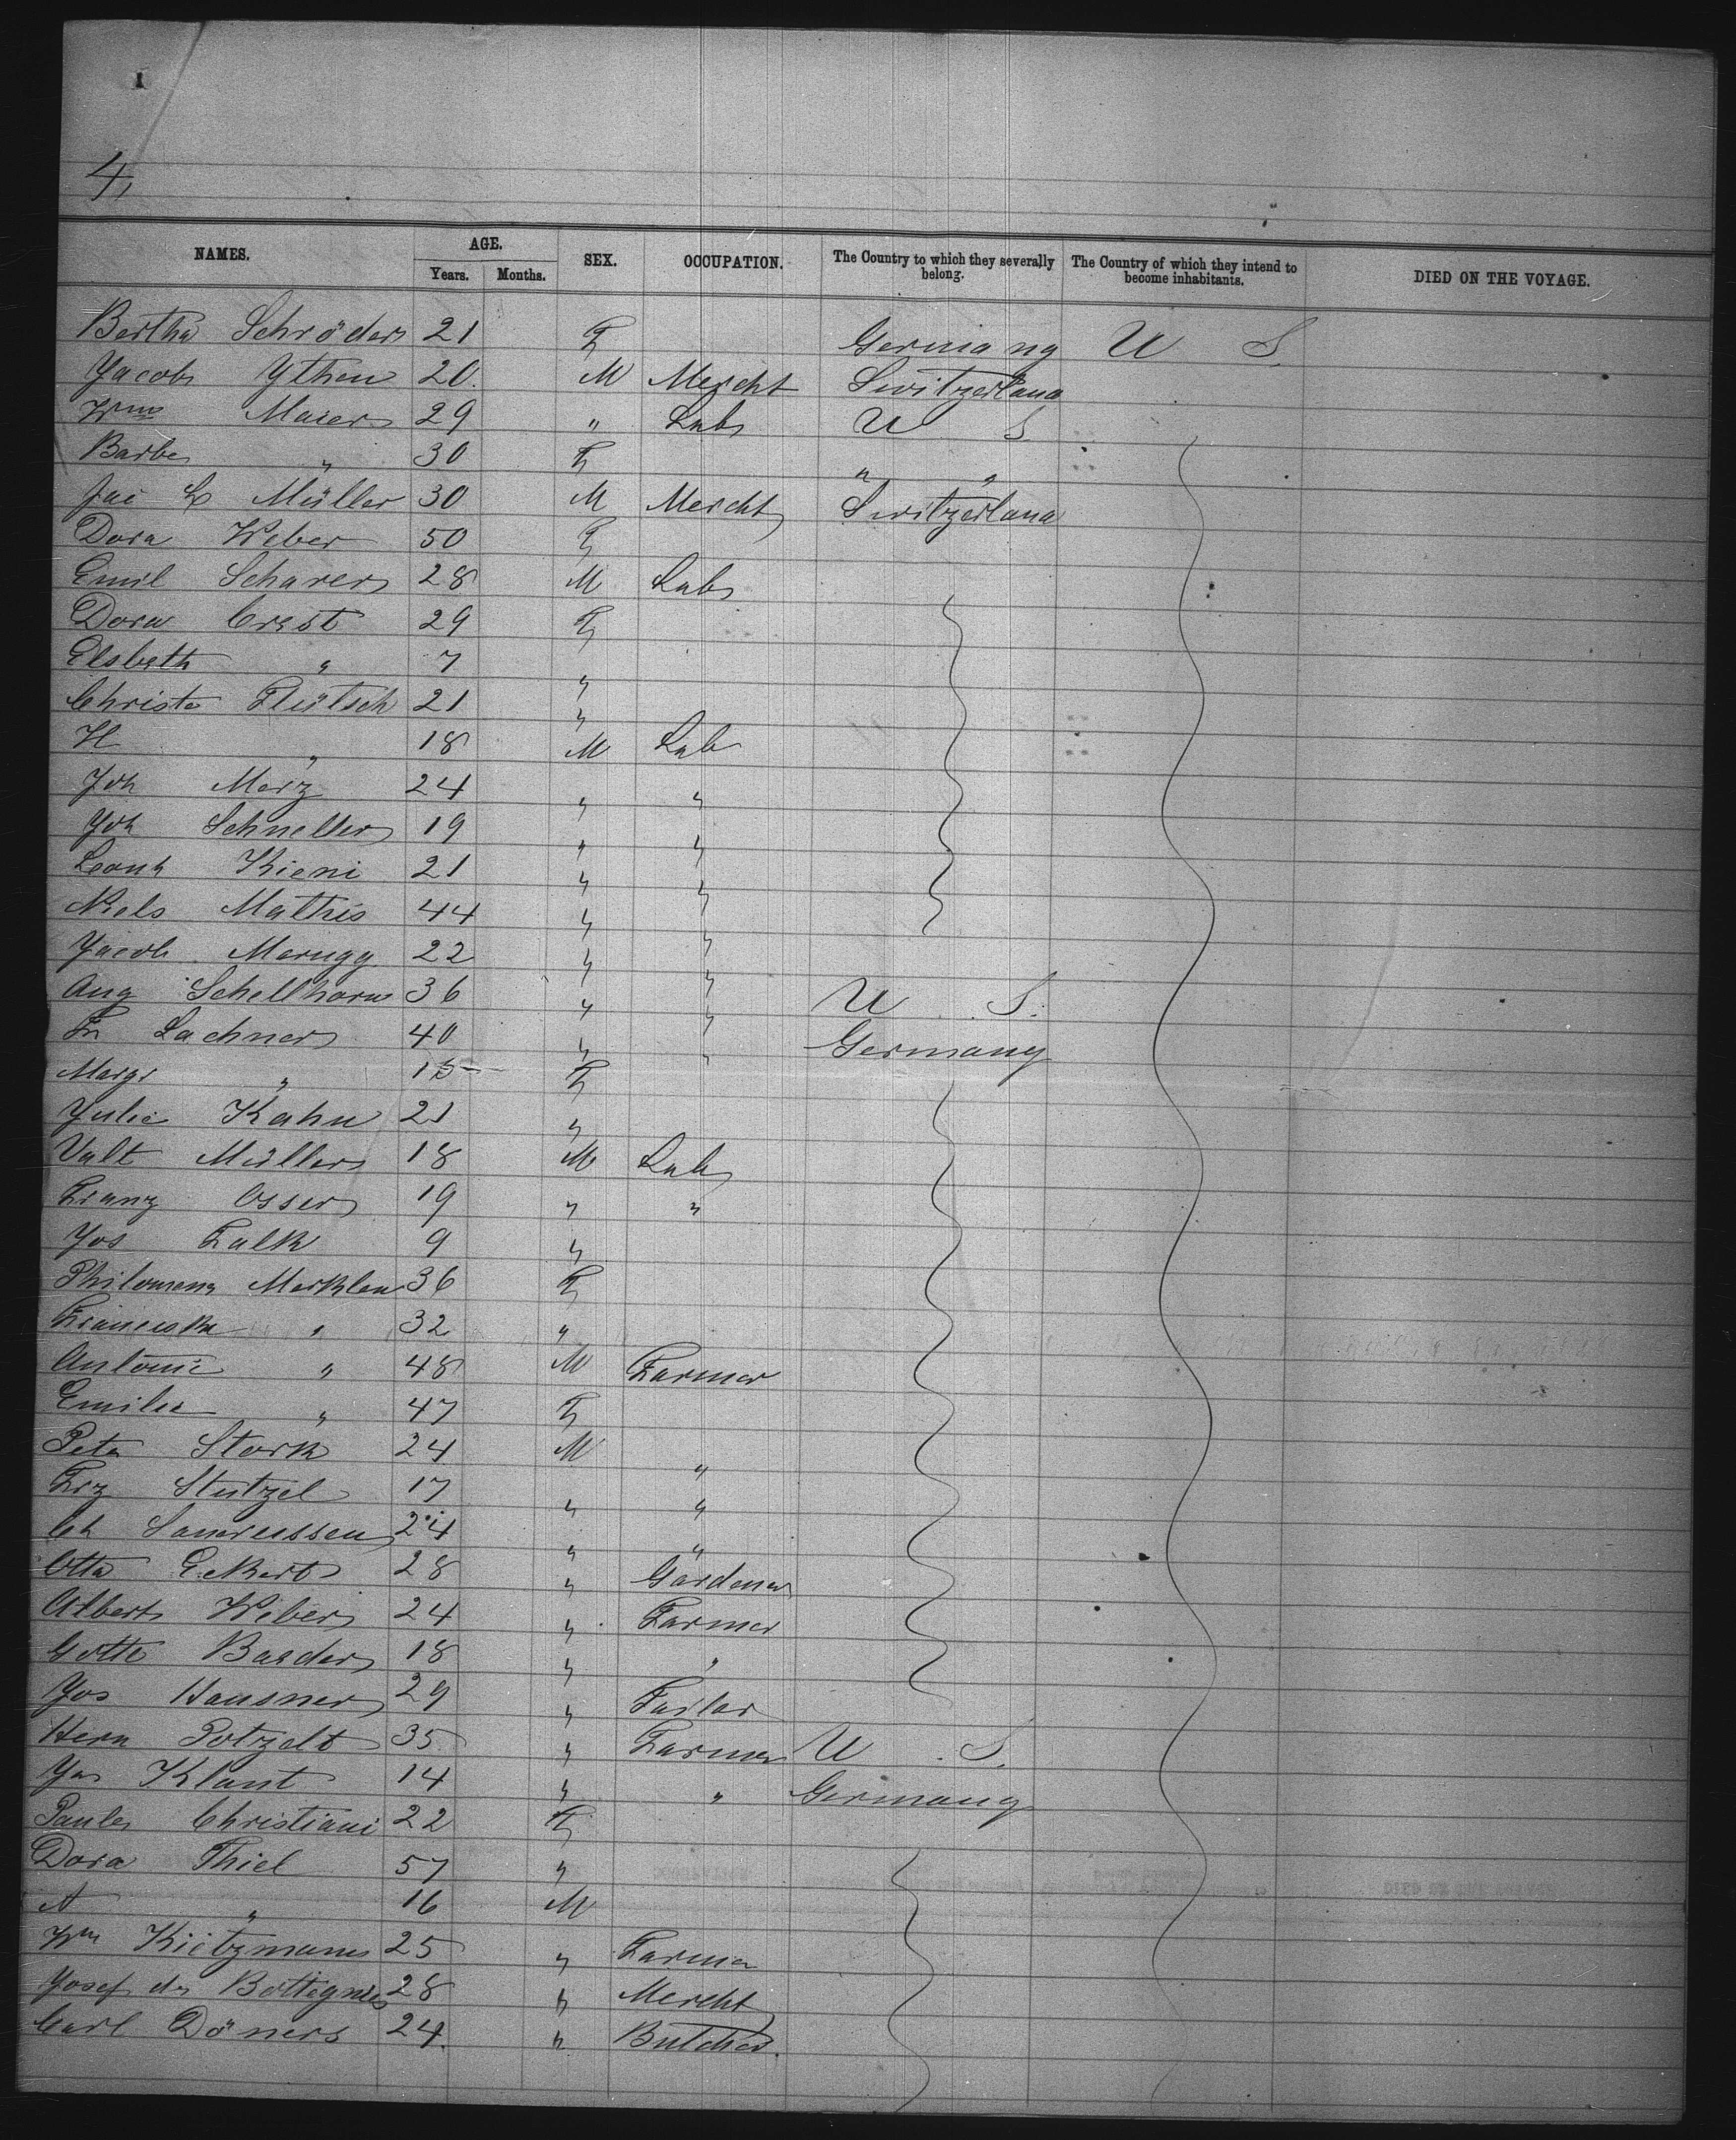 4,
NAMES. AGE. SEX. OCCUPATION. The Country to which they severally belong. The Country of which they intend to become inhabitants. DIED ON THE VOYAGE.
Years. Months.
Bertha Schröder 21 F Germany U S
Jacob Ythen 20. M Mercht Switzerland
Wm Maier 29 " Lab U S
Barba " 30 F " "
Jac L Müller 30 M Mercht Switzerland
Dora Weber 50 F
Emil Scharer 28 M Lab
Dora Crest 29 F
Elsbeth " 7 "
Christa Flütsch 21 "
H " 18 M Lab
Joh Merz 24 " "
Joh Schneller 19 " "
Leonh Kieni 21 " "
Niels Mathis 44 " "
Jacob Marugg 22 " "
Aug Schellhorn 36 " " U S.
Fr Lachner 40 " " Germany
Margr " 15 F
Julie Kahn 21 "
Valt Müller 18 M Lab
Franz Osser 19 " "
Jos Falk 9 "
Philomena Merklen 36 F
Franciska " 32 "
Antoni " 48 M Farmer
Emilie " 47 F
Peter Stork 24 M "
Frz Stutzel 17 " "
Ch 24 " "
Otto Eckert 28 " Gardener
Albert Weber 24 " Farmer
Gotte Baader 18 " "
Jos Hausner 29 " Tailor
Herm Potzelt 35 " Farmer U S.
Jas Klant 14 " " Germany
Paula Christiani 22 F
Dora Thiel 57 "
A " 16 M
Wm Kietzmann 25 " Farmer
Josef de 28 " Mercht
Carl Döners 24. " Butcher.